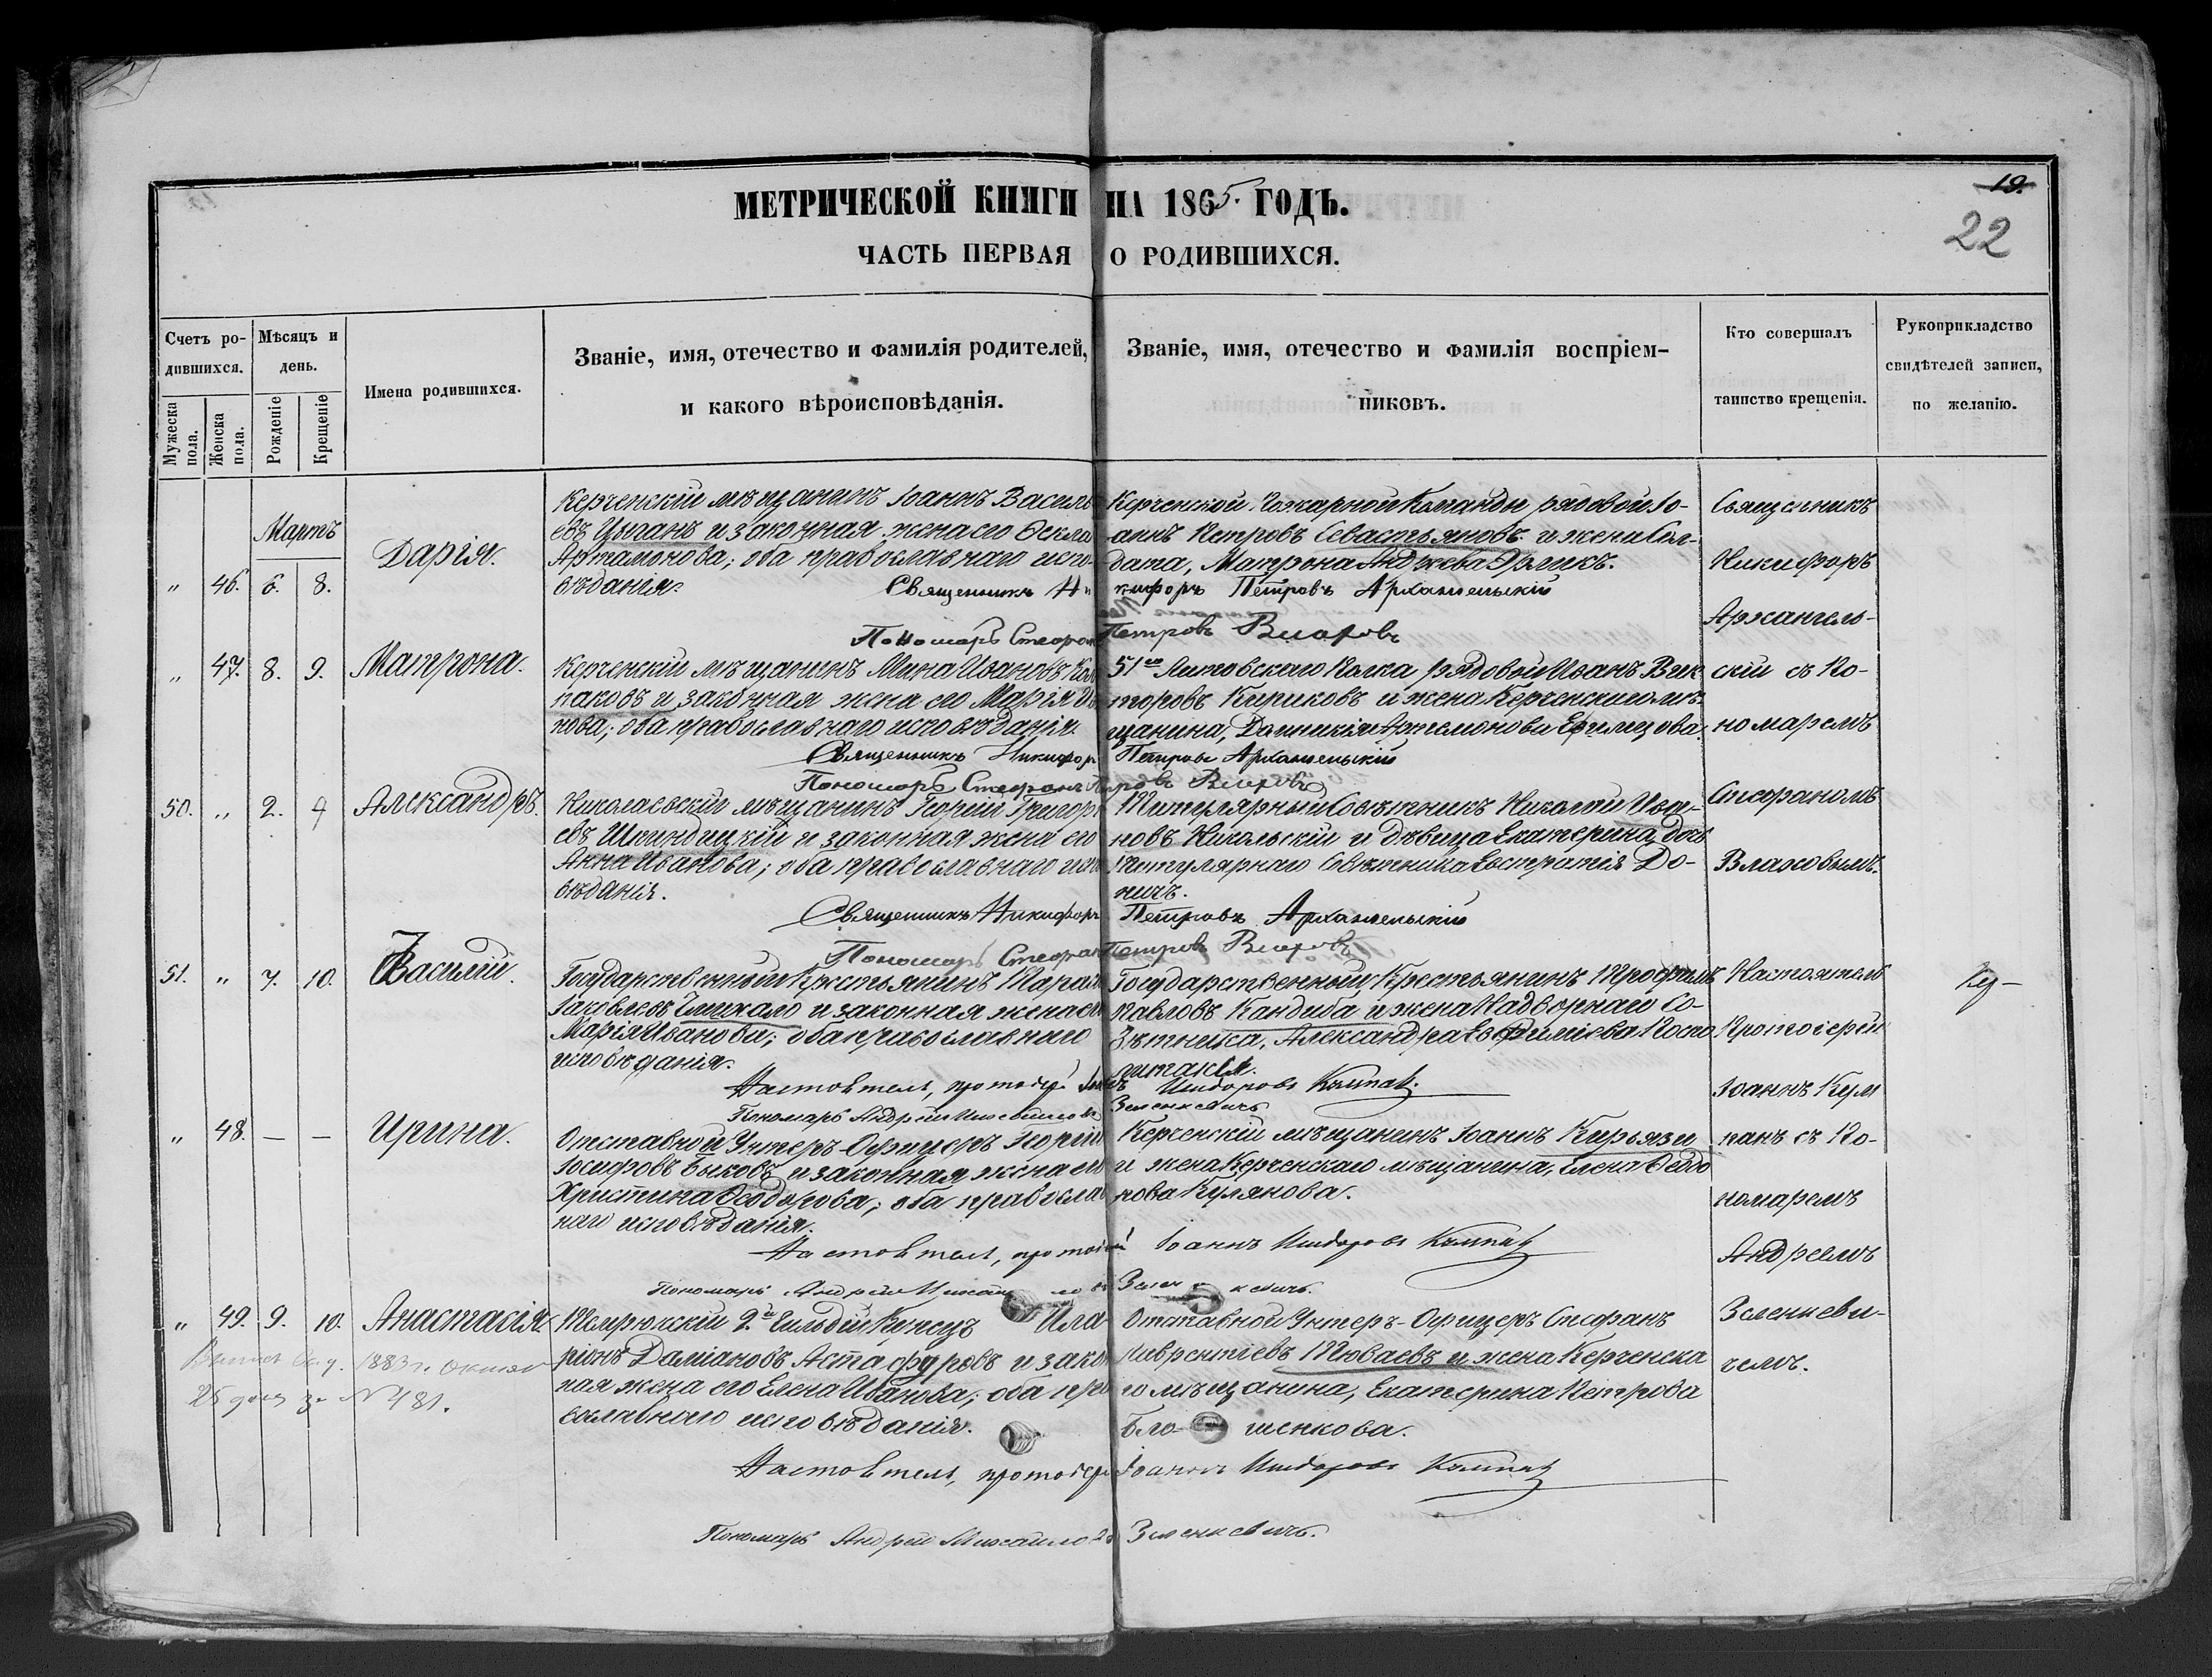 МЕТРИЧЕСКОЙ КНИГИ НА 1865. ГОДЪ.
19.
22
ЧАСТЬ ПЕРВАЯ О РОДИВШИХСЯ.
Счетъ родившихся.
Мужеска пола.
Женска пола.
Мѣсяцъ и день.
Рожденіе
Крещеніе
Имена родившихся.
Званіе, имя, отечество и фамилія родителей,
и какого вѣроисповѣданія.
Званіе, имя, отечество и фамилія воспріем-
никовъ.
Кто совершалъ
таинство крещенія.
Рукоприкладство
свидѣтелей записи,
по желанію.
Мартъ
" 46. 6. 8.
Дарія.
Керченскій мѣщанинъ Іоаннъ Василь
евъ Цыганъ и законная жена его Ѳекла
Артамонова; оба православнаго испо-
вѣданія.
Керченской Пожарной Команды рядовой Іо-
аннъ Петровъ Севастьяновъ и жена Сол-
дата, Матрона
Священникъ Никифоръ Петровъ Архангельскій
Пономарь Стефанъ Петровъ Влаховъ
" 47. 8. 9.
Матрона.
Керченскій мѣщанинъ Мина Ивановъ Кол
паковъ и законная жена его Марія
нова; оба православнаго исповѣданія.
51го Литовскаго Полка рядовой Иванъ Вик
торовъ Кириковъ и жена Керченскаго мѣ-
щанина, Домникія Артемонова
Священникъ Никифоръ Петровъ Архангельскій
Пономарь Стефанъ Петровъ Влаховъ
50. " 2. 9
Александръ.
Николаевскій мѣщанинъ Георгій Григорь
евъ и законная жена его
Анна Иванова; оба православнаго испо
вѣданія.
Титулярный Совѣтникъ Николай Ива-
новъ Никольскій и дѣвица Екатерина, дочь
Титулярнаго Совѣтника Евстратія До-
ничъ.
Священникъ Никифоръ Петровъ Архангельскій
Пономарь Стефанъ Петровъ Влаховъ
51. " 7. 10.
Василій.
Государственный Крестьянинъ
Іаковлевъ и законная жена его
Марія Иванова; оба православнаго
исповѣданія.
Государственный Крестьянинъ Трофимъ
Павловъ Кандиба и жена Надворнаго Со-
вѣтника, Александра Евфиміева
Настоятель, протоіерей Іоаннъ Исидоровъ Кумпанъ
Пономарь Андрей Михайловъ Зеленкевичъ
" 48. — —
Ирина.
Отставной Унтеръ-Офицеръ Георгій
Іосифовъ Быковъ и законная жена его
Христина Ѳеодорова; оба православ
наго исповѣданія.
Керченскій мѣщанинъ Іоаннъ Кирьязи
и жена Керченскаго мѣщанина, Елена Ѳеодо
рова Кулянова.
Настоятель, протоіерей Іоаннъ Исидоровъ Кумпанъ
Пономарь Андрей Михайловъ Зеленкевичъ.
" 49. 9. 10.
Анастасія.
Темрюкскій 2й Гильдіи Купецъ Ила
ріонъ Даміановъ Астафуровъ и закон
ная жена его Елена Иванова; оба пра
вославнаго исповѣданія.
Отставной Унтеръ-Офицеръ Стефанъ
Лаврентіевъ Тюваевъ и жена Керченска
го мѣщанина, Екатерина Петрова
1883 г.
25 дня за № 481.
Настоятель, протоіерей Іоаннъ Исидоровъ Кумпанъ
Пономарь Андрей Михайловъ Зеленкевичъ.
Священникъ
Никифоръ
Архангель-
скій съ По-
номаремъ
Стефаномъ
Влаховымъ.
Настоятель
Протоіерей
Іоаннъ Кум
панъ съ По-
номаремъ
Андреемъ
Зеленкеви-
чемъ.